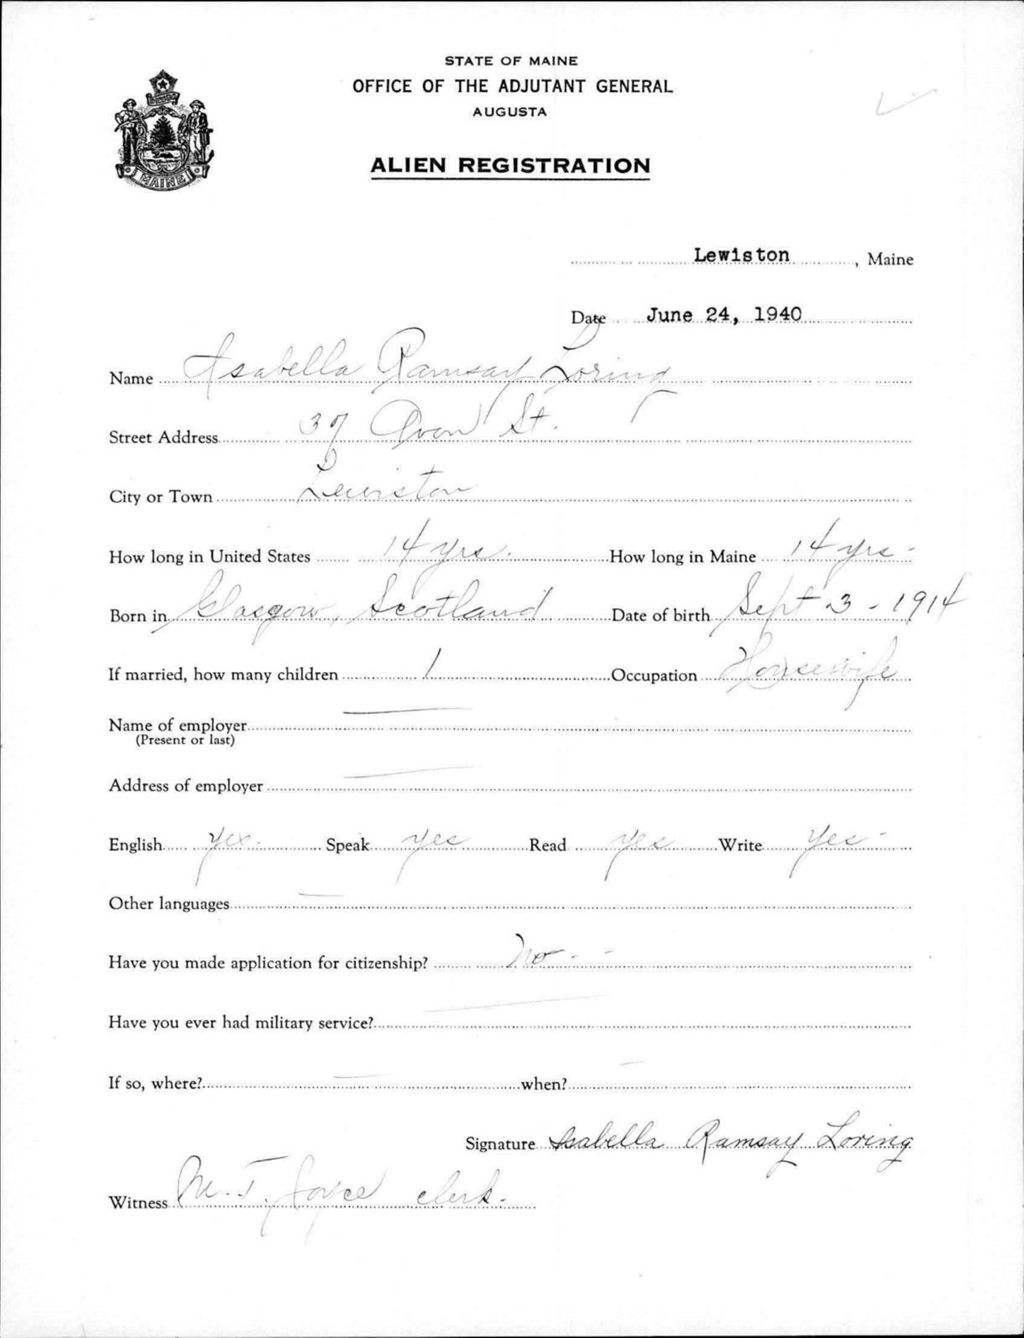 STATE OF MAINE
OFFICE OF THE ADJUTANT GENERAL
AUGUSTA
ALIEN REGISTRATION
MAINE
Lewiston, Maine
Date June 24, 1940
Name Isabella Ramsay Loring
Street Address 37 Avon St.
City or Town Lewiston
How long in United States 14 yrs. How long in Maine 14 yrs -
Born in Glasgow, Scotland Date of birth Sept 3 - 1914
If married, how many children 1 Occupation Housewife
Name of employer —
(Present or last)
Address of employer —
English yes. Speak yes Read yes Write Yes -
Other languages —
Have you made application for citizenship? No - -
Have you ever had military service? —
If so, where? — when? —
Signature Isabella Ramsay Loring
Witness M. T. Joyce clerk.